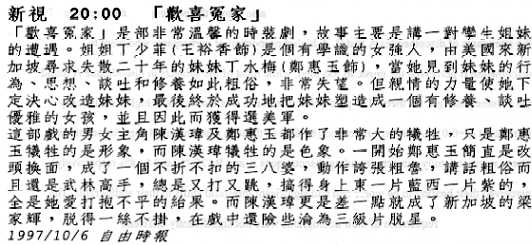 新視　20:00　「歡喜冤家」
「歡喜冤家」是部非常溫馨的時裝劇，故事主要是講一對孿生姐妹
的遭遇。姐姐丁少菲(王裕香飾)是個有學識的女強人，由美國來新
加坡尋求失散二十年的妹妹丁水梅(鄭惠玉飾)，當她見到妹妹的行
為、思想、談吐和修養如此粗俗，非常失望。但親情的力量使她下
定決心改造妹妹，最後終於成功地把妹妹塑造成一個有修養、談吐
優雅的女孩，並且因此而獲得選美軍。
這部戲的男女主角陳漢瑋及鄭惠玉都作了非常大的犧牲，只是鄭惠
玉犧牲的是形象，而陳漢瑋犧牲的是色象。一開始鄭惠玉簡直是改
頭換面，成了一個不折不扣的三八婆，動作誇張粗魯，講話粗俗而
且還是武林高手，總是又打又跳，搞得身上東一片藍西一片紫的，
全是她愛打抱不平的結果。而陳漢瑋更是差一點就成了新加坡的梁
家輝，脫得一絲不掛，在戲中還險些淪為三級片脫星。
1997/10/6 自由時報